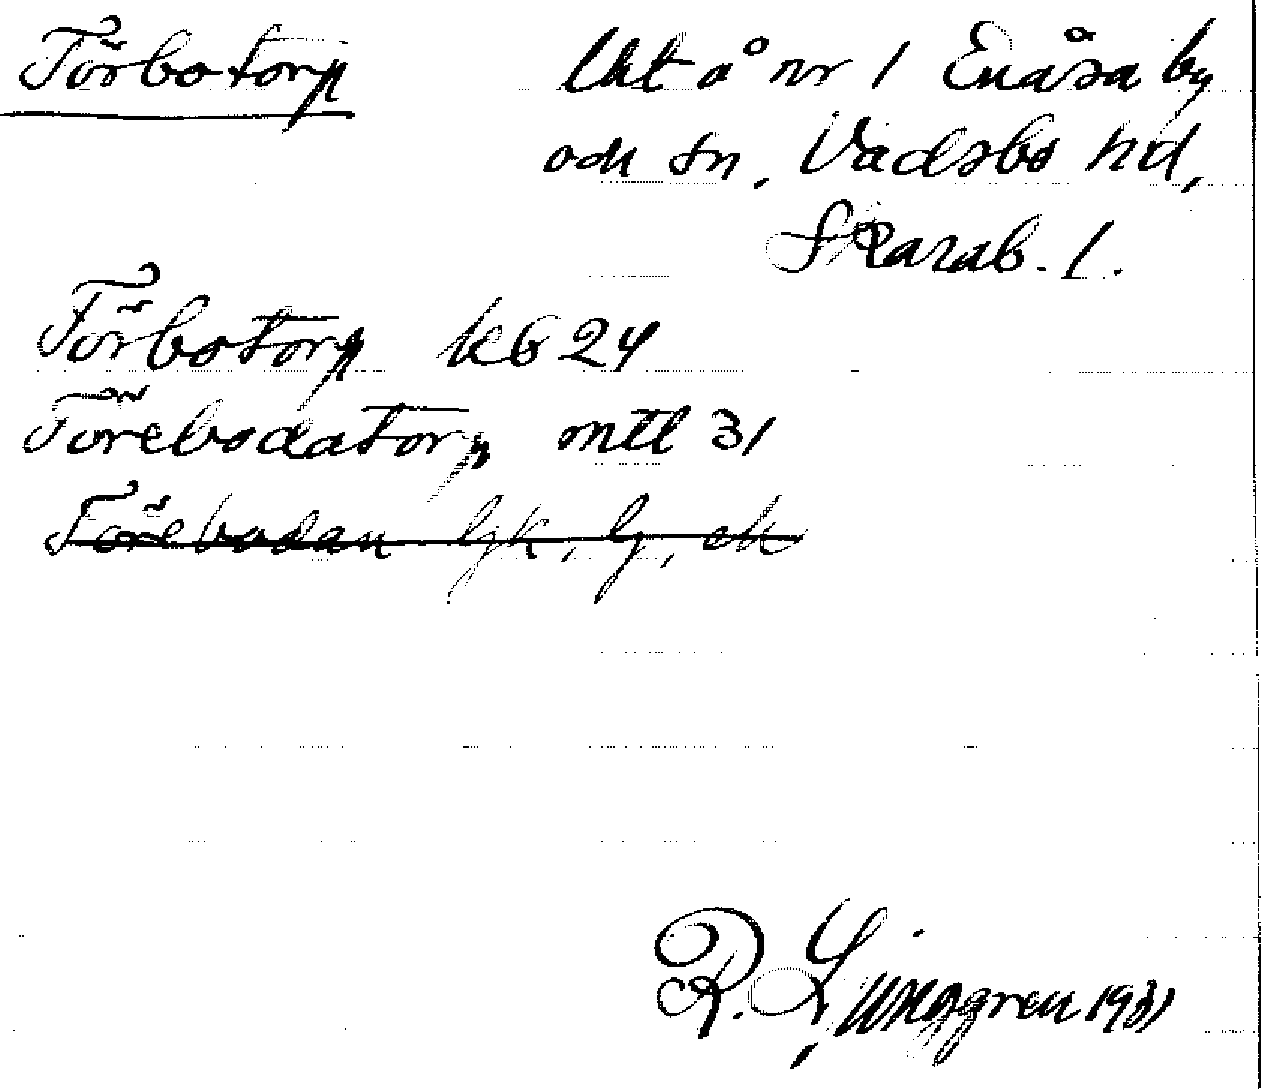 Törbotorp
Utt å nr 1 Enåsa by
och sn, Vadsbo hd,
Skarab. l.
Törbotorp kb 24
Törebodatorp mtl 31
Töreboda
R. Ljunggren 1931